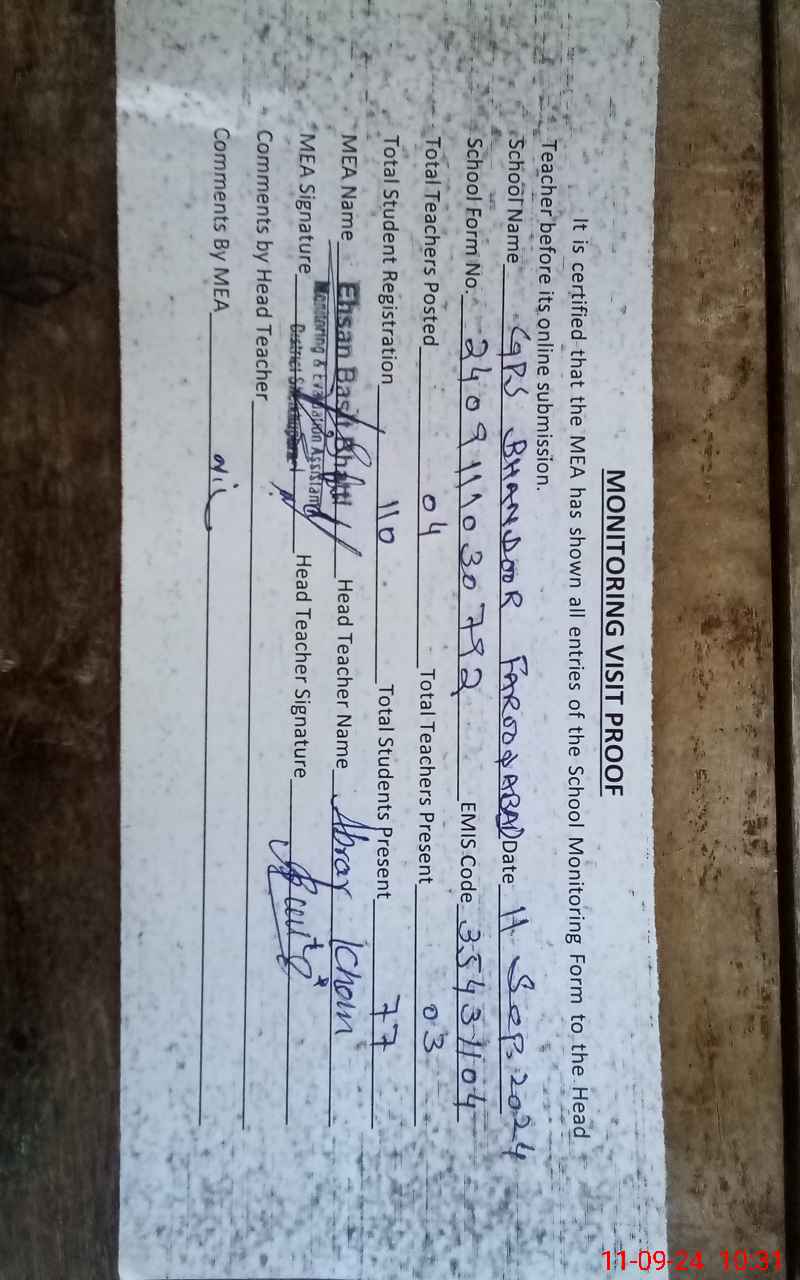 MONITORING VISIT PROOF
It is certified that the MEA has shown all entries of the School Monitoring Form to the Head
Teacher before its online submission.
School Name GPS BHANDOOR FAROOQABAD Date 11 Sep. 2024
School Form No. 2409111030792 EMIS Code 35431104
Total Teachers Posted 04 Total Teachers Present 03
Total Student Registration 110 Total Students Present 77
MEA Name Ehsan Bari Bhatti Head Teacher Name Abrar
Monitoring & Evaluation Assistant
MEA Signature District Head Teacher Signature
Comments by Head Teacher
Comments By MEA Nil
11-09-24 10:31